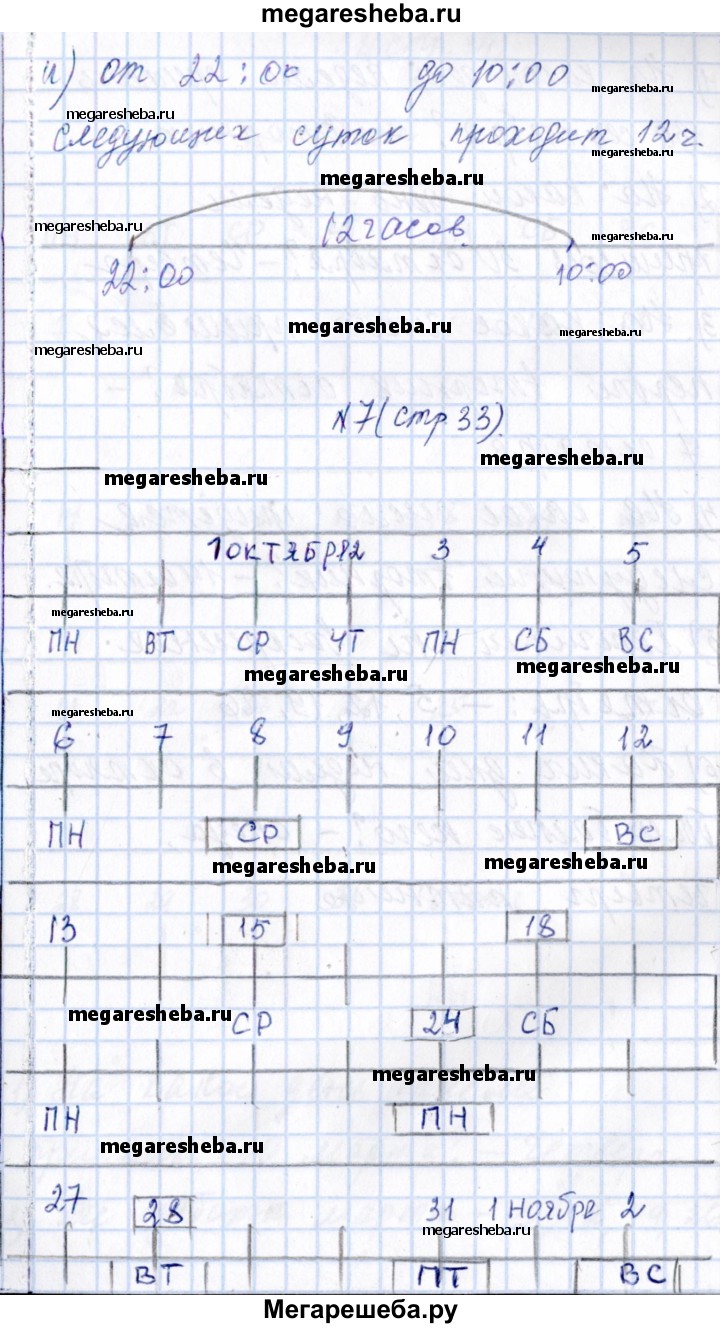 megaresheba.ru
и) от 22:00 до 10:00
megaresheba.ru
megaresheba.ru
следующих суток проходит 12 ч.
megaresheba.ru
megaresheba.ru
megaresheba.ru
12 часов
megaresheba.ru
22:00 10:00
megaresheba.ru
megaresheba.ru
megaresheba.ru
№7 (стр. 33).
megaresheba.ru
megaresheba.ru
1 ОКТЯБРЯ 2 3 4 5
megaresheba.ru
ПН ВТ СР ЧТ ПН СБ ВС
megaresheba.ru
megaresheba.ru
megaresheba.ru
6 7 8 9 10 11 12
ПН СР ВС
megaresheba.ru
megaresheba.ru
13 15 18
megaresheba.ru
СР 24 СБ
megaresheba.ru
ПН ПН
megaresheba.ru
27 28 31 1 ноября 2
megaresheba.ru
ВТ ПТ ВС
Мегарешеба.ру